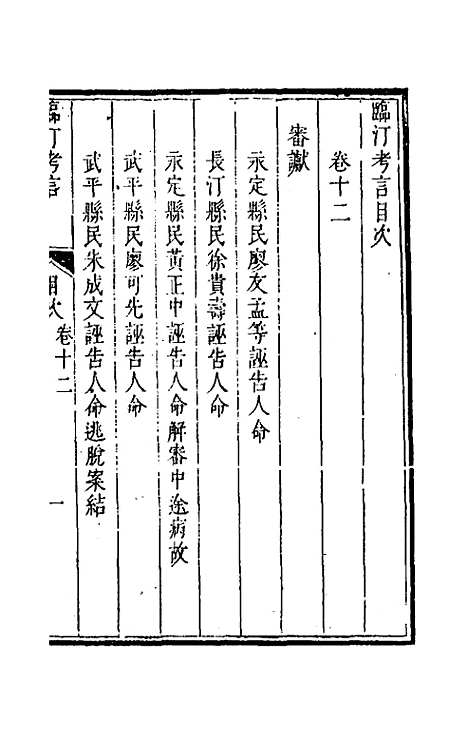 臨汀考言目次
卷十二
審讞
永定縣民廖友孟等誣告人命
長汀縣民徐貴壽誣告人命
永定縣民黃正中誣告人命解審中途病故
武平縣民廖可先誣告人命
武平縣民朱成文誣告人命逃脫案結
臨汀考言 目次 卷十二 一